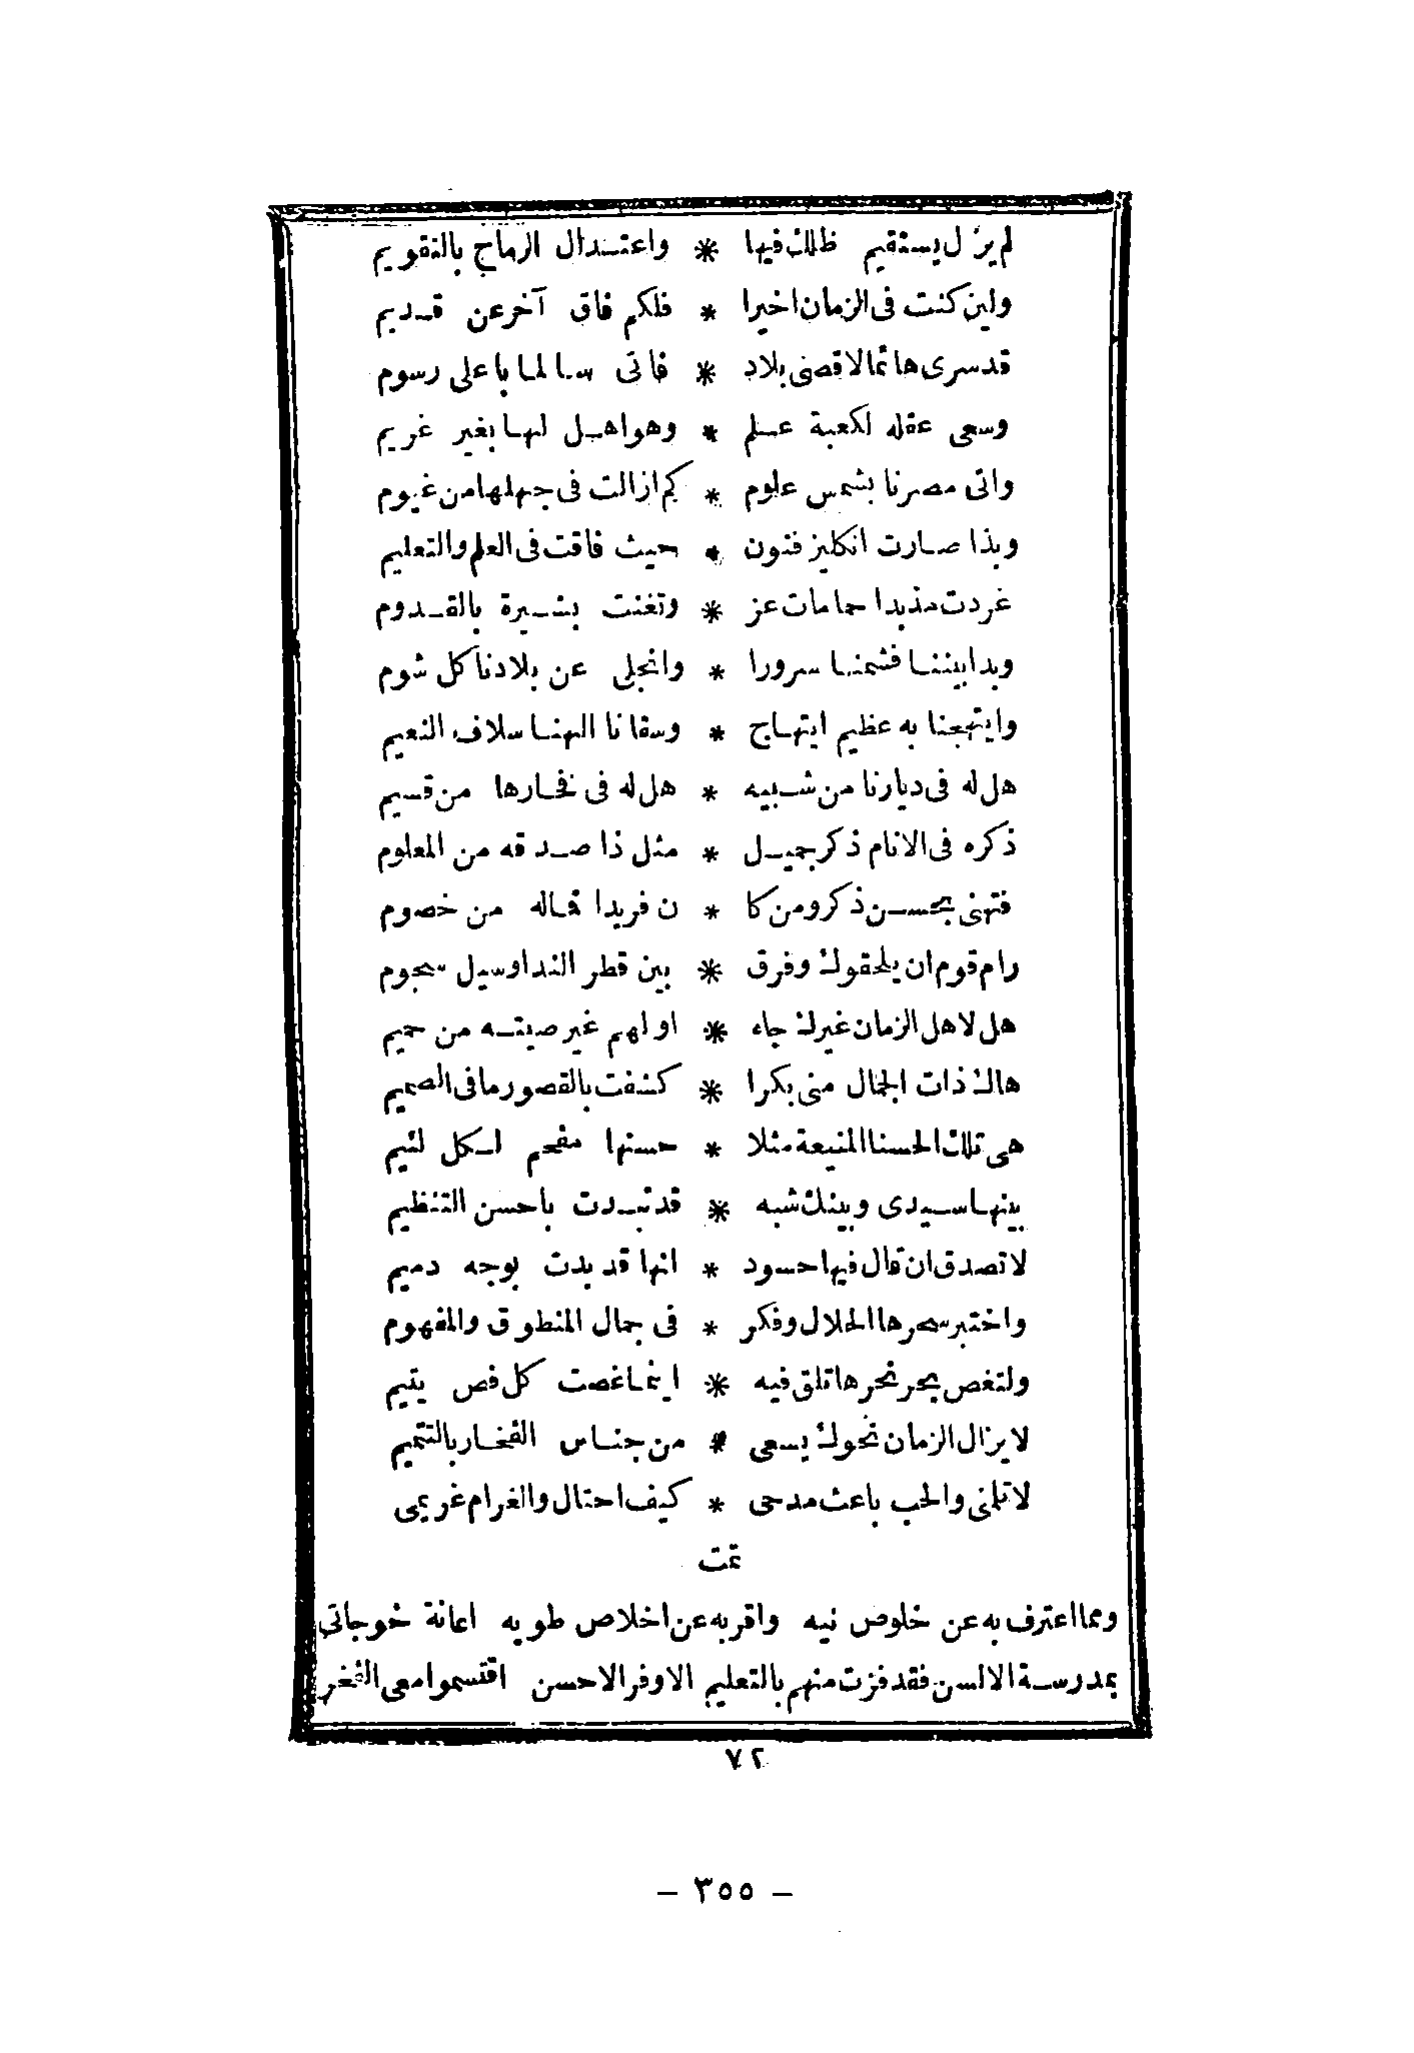 لم يزل يستقيم ظلك فيها * واعتدال الرماح بالتقويم
ولين كنت فى الزمان اخيرا * فلكم فاق آخر عن قديم
قد سرى هائما لاقصى بلاد * فاتى سالما باعلى رسوم
وسعى عقله لكعبة علم * وهو اهل لها بغير غريم
واتى مصرنا بشمس علوم * كم ازالت فى جهلها من غيوم
وبذا صارت انكليز فنون * حيث فاقت فى العلم والتعليم
غردت مذبدا حمامات عز * وتغنت بشيرة بالقدوم
وبدا بيننا فشمنا سرورا * وانجلى عن بلادنا كل شوم
وابتهجنا به عظيم ابتهاج * وسقانا الهنا سلاف النعيم
هل له فى ديارنا من شبيه * هل له فى فخارها من قسيم
ذكره فى الانام ذكر جميل * مثل ذا صدقه من المعلوم
فتهنى بحسن ذكر ومن كا * ن فريدا فماله من خصوم
رام قوم ان يلحقوك وفرق * بين قطر الندا وسيل سجوم
هل لاهل الزمان غيرك جاء * او لهم غير صيته من حميم
هاك ذات الجمال منى بكرا * كشفت بالقصور ما فى الصميم
هى تلك الحسنا المنيعة مثلا * حسنها مفحم لكل لئيم
بينها سيدى وبينك شبه * قد تبدت باحسن التنظيم
لا تصدق ان قال فيها حسود * انها قد بدت بوجه دميم
واختبر سحرها الحلال وفكر * فى جمال المنطوق والمفهوم
ولتغص بحر نحرها تلق فيه * اينما غصت كل فص يتيم
لا يزال الزمان نحوك يسعى * من جناس الفخار بالتتميم
لا تلمنى والحب باعث مدحى * كيف احتال والغرام غريمى
تمت
ومما اعترف به عن خلوص نيه واقر به عن اخلاص طويه اعانة خوجاتى
بمدرسة الالسن فقد فزت منهم بالتعليم الاوفر الاحسن اقتسموا معى الفخر
٧٢
— ٣٥٥ —